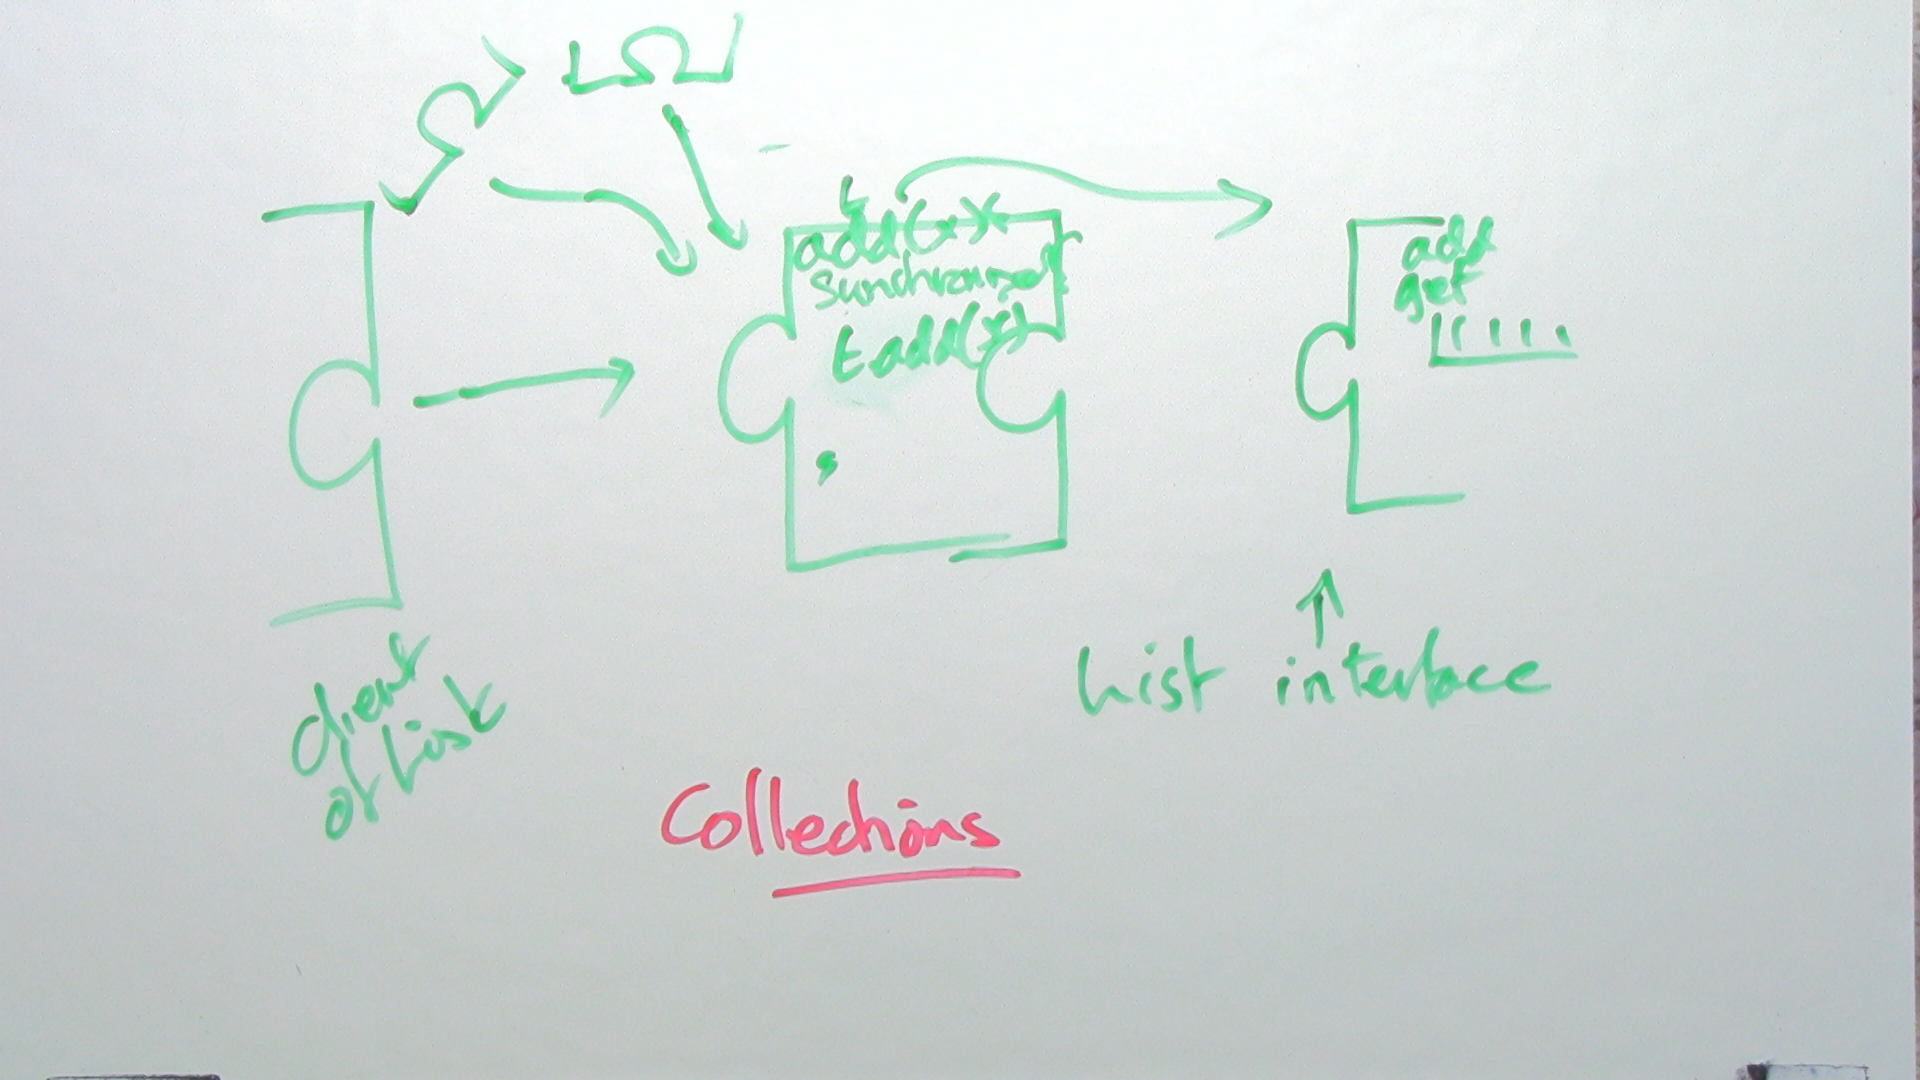 t
add(x){
synchronized
t.add(x)
add
get
client
of List
List interface
Collections